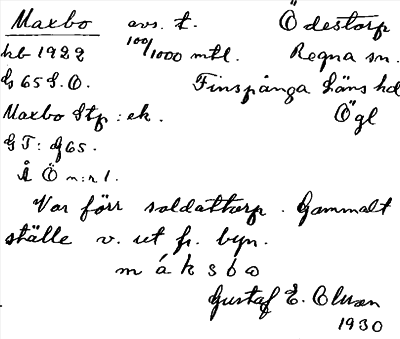 Maxbo avs. t. Ödestorp
hb 1922 100/1000 mtl. Regna sn.
Gs 65 S.O. Finspånga Läns hd
Maxbo Stp : ek. Ögl
GT: g 65.
Å Ö n:r 1.
Var förr soldattorp. Gammalt
ställe v. ut fr. byn.
m á k s b ω
Gustaf E. Olsson
1930